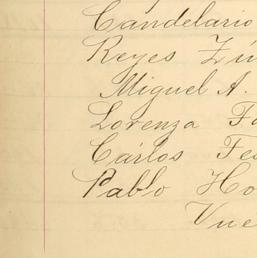 Candelario
Reyes Zú
Miguel A.
Lorenza Fa
Cárlos Fe
Pablo Ho
Vue